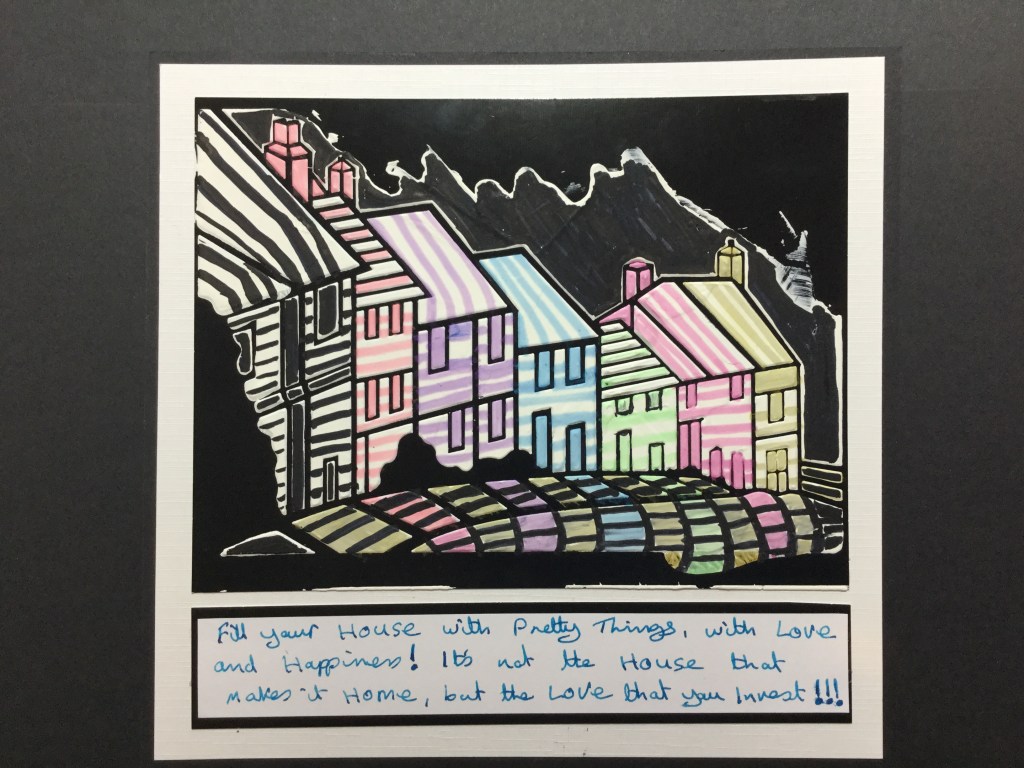 Fill your House with Pretty Things, with Love
and Happiness! It's not the House that
makes it Home, but the Love that you Invest!!!